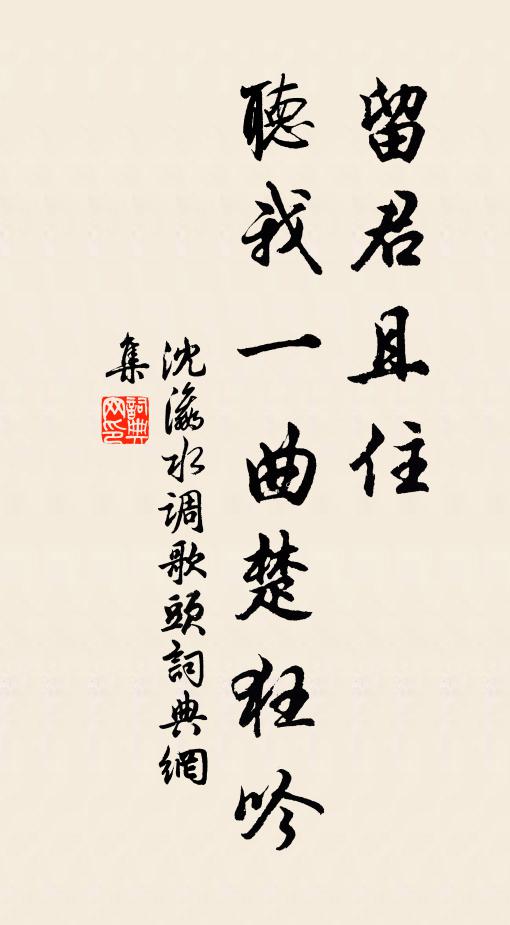 留君且住
聽我一曲楚狂吟
沈瀛水调歌頭詞典網
集
詞典网印